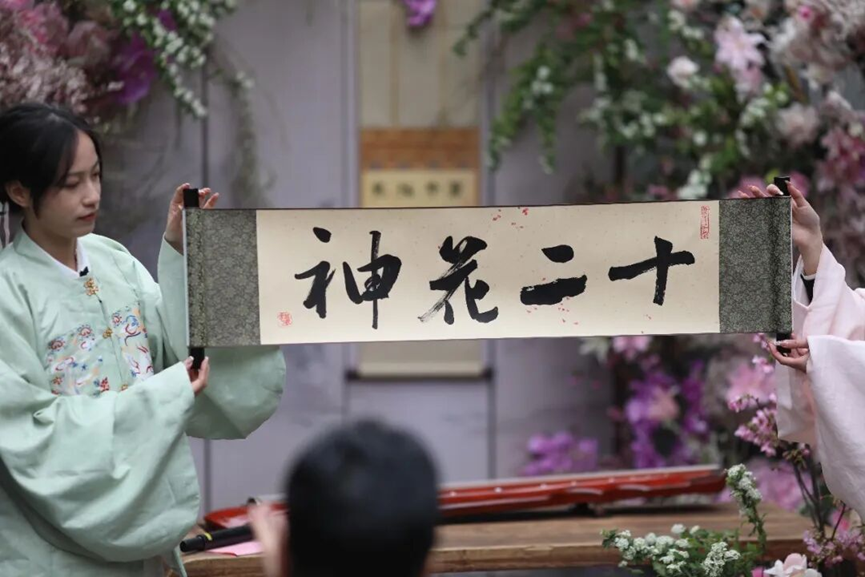 十二花神